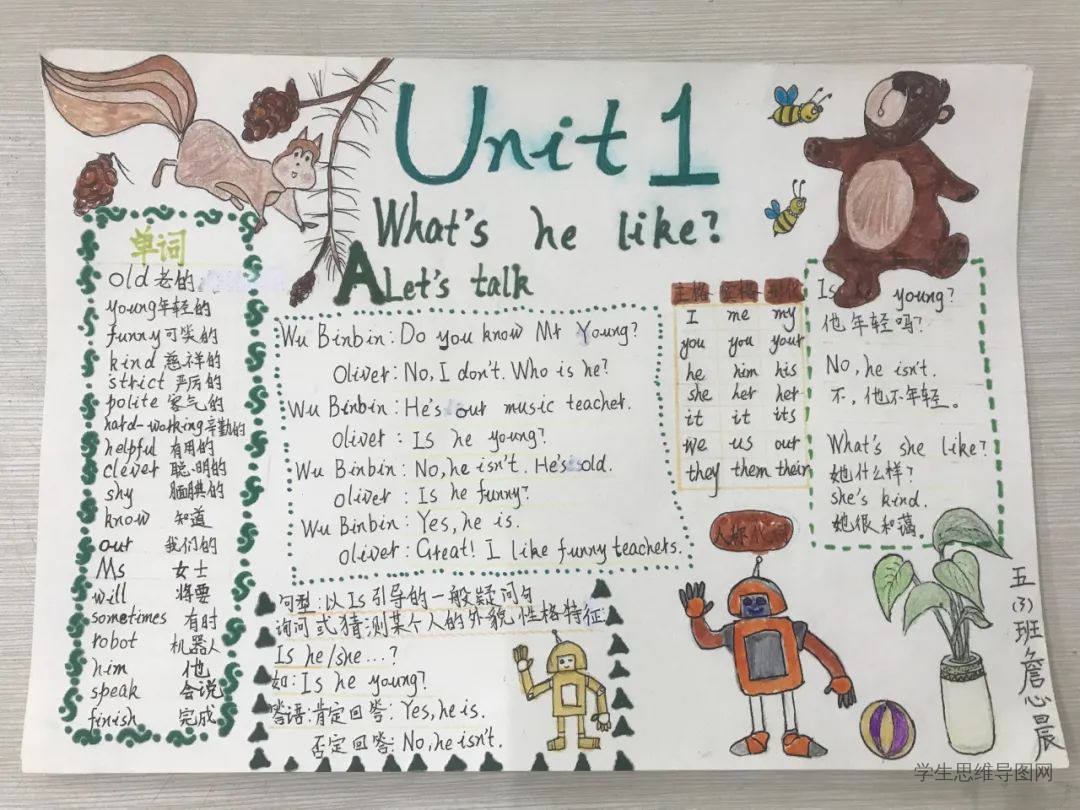 Unit 1
What's he like?
A Let's talk
单词
old 老的
young 年轻的
funny 可笑的
kind 慈祥的
strict 严厉的
polite 客气的
hard-working 辛勤的
helpful 有用的
clever 聪明的
shy 腼腆的
know 知道
our 我们的
Ms 女士
will 将要
sometimes 有时
robot 机器人
him 他
speak 会说
finish 完成
Wu Binbin: Do you know Mr Young?
Oliver: No, I don't. Who is he?
Wu Binbin: He's our music teacher.
Oliver: Is he young?
Wu Binbin: No, he isn't. He's old.
Oliver: Is he funny?
Wu Binbin: Yes, he is.
Oliver: Great! I like funny teachers.
句型: 以Is引导的一般疑问句
询问或猜测某个人的外貌性格特征
Is he/she...?
如: Is he young?
答语: 肯定回答: Yes, he is.
否定回答: No, he isn't.
主格 宾格
I me my
you you your
he him his
she her her
it it its
we us our
they them their
人称
Is young?
他年轻吗?
No, he isn't.
不, 他不年轻。
What's she like?
她什么样?
she's kind.
她很和蔼。
五(3)班詹心晨
学生思维导图网